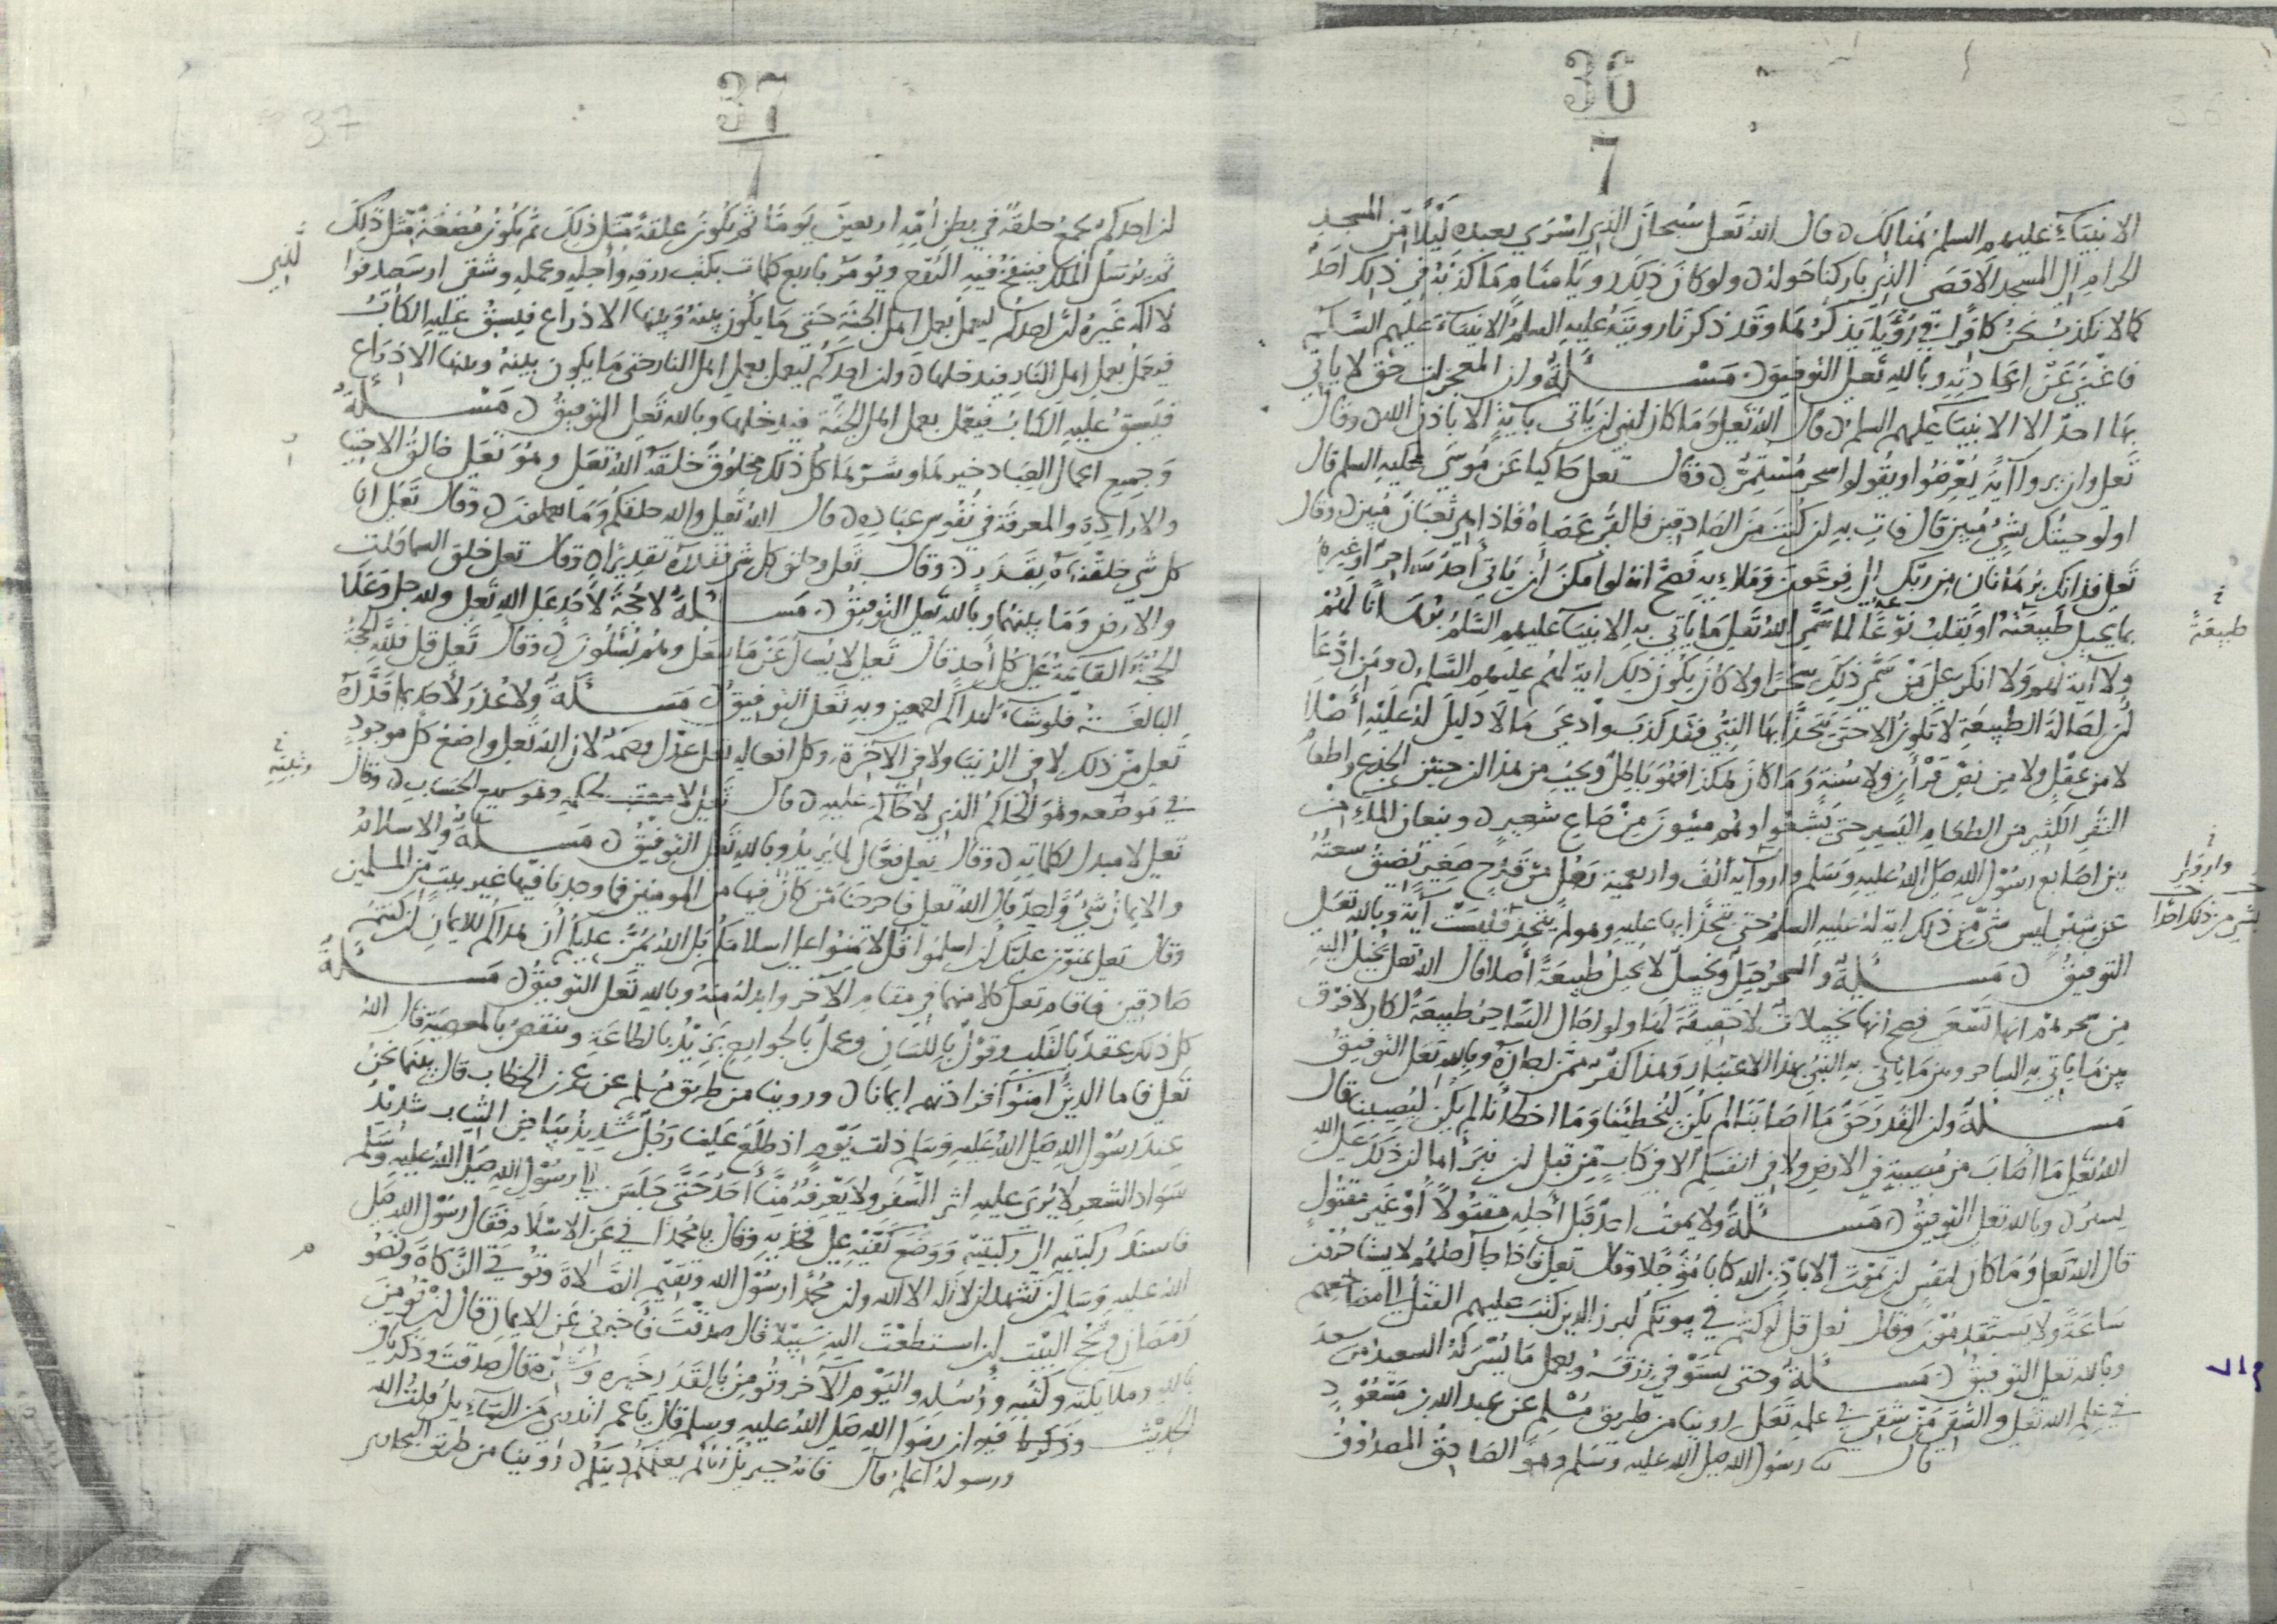 36
7
الانبياء عليهم السلم هنالك ن قال الله تعلى سبحان الذي اسرى بعبده ليلا من المسجد
الحرام الى المسجد الاقصى الذي باركنا حوله ن ولو كان ذلك رويا منام ما كذبه في ذلك احد
كما لا نكذب نحن كافرا في رؤيا يذكرها وقد ذكرنا رويته عليه السلم الانبياء عليهم السلم
فاغنى عن اعادته وبالله تعلى التوفيق ن مسئلة وان المعجزات حق لا ياتي
بها احد الا الانبيا عليهم السلم ن قال الله تعلى وما كان لنبي ان ياتي باية الا باذن الله ن وقال
تعلى وان يروا آية يعرضوا ويقولوا سحر مستمر ن وقال تعلى حاكيا عن موسى عليه السلم قال
اولو جيتك بشيء مبين قال فات به ان كنت من الصادقين فالقى عصاه فاذا هي ثعبان مبين ن وقال
تعلى فذانك برهانان من ربك الى فرعون وملايه فصح انه لو امكن ان ياتي احد ساحر او غيره
بما يحيل طبيعة او يقلب نوعا لما سمى الله تعلى ما ياتي به الانبيا عليهم السلم برهانا لهم
ولا آية لهم ولا انكر على من سمى ذلك سحرا ولا كان يكون ذلك اية لهم عليهم السلم ن ومن ادعا
ان احالة الطبيعة لا تكون الا حتى يتحدا بها النبي فقد كذب وادعى ما لا دليل له عليه اصلا
لا من عقل ولا من نص قرآن ولا سنة وما كان هكذا فهو باطل ويجب من هذا ان حنين الجذع واطعام
النفر الكثير من الطعام اليسير حتى يشبعوا وهم ميون من صاع شعير ن ونبعان الماء من
بين اصابع رسول الله صلى الله عليه وسلم وارواه الف واربعمية رجل من قدح صغير تضيق سعته
عن شبر ليس شيء من ذلك اية له عليه السلم حتى يتحدا بها عليه وهو لم يتحد فليست آية وبالله تعلى
التوفيق ن مسئلة والسحر حيل وتخييل لا يحيل طبيعة اصلا قال الله تعلى يخيل اليه
من سحرهم انها تسعى فصح انها تخييلات لا حقيقة لها ولو احال الساحر طبيعة لكان لا فرق
بين ما ياتي به الساحر وبين ما ياتي به النبي بهذا الاعتبار وهذا كفر ممن اجازه وبالله تعلى التوفيق
مسئلة وان القدر حق ما اصابنا لم يكن ليخطئنا وما اخطأنا لم يكن ليصيبنا قال
الله تعلى ما اصاب من مصيبة في الارض ولا في انفسكم الا في كتاب من قبل ان نبرأها ان ذلك على الله
يسير ن وبالله تعلى التوفيق ن مسئلة ولا يموت احد قبل اجله مقتولا او غير مقتول
قال الله تعلى وما كان لنفس ان تموت الا باذن الله كتابا مؤجلا وقال تعلى فاذا جا اجلهم لا يستاخرون
ساعة ولا يستقدمون وقال تعلى قل لو كنتم في بيوتكم لبرز الذين كتب عليهم القتل الى مضاجعهم
وبالله تعلى التوفيق ن مسئلة وحتى يستوفي رزقه ويعمل ما يسر له السعيد من سعد
في علم الله تعلى والشقي من شقي في علمه تعلى روينا من طريق مسلم عن عبد الله بن مسعود
قال رسول الله صلى الله عليه وسلم وهو الصادق المصدوق
طبيعة
وارواء
بشي من ذلك احدا
37
7
ان احدكم يجمع خلقه في بطن امه اربعين يوما ثم يكون علقة مثل ذلك ثم يكون مضغة مثل ذلك
ثم يرسل الملك فينفخ فيه الروح ويؤمر باربع كلمات بكتب رزقه واجله وعمله وشقي او سعيد فوا
لا اله غيره ان احدكم ليعمل بعمل اهل الجنة حتى ما يكون بينه وبينها الا ذراع فيسبق عليه الكتاب
فيعمل بعمل اهل النار فيدخلها ن وان احدكم ليعمل بعمل اهل النار حتى ما يكون بينه وبينها الا ذراع
فيسبق عليه الكتاب فيعمل بعمل اهل الجنة فيدخلها وبالله تعلى التوفيق ن مسئلة
وجميع اعمال العباد خيرها وشرها كل ذلك مخلوق خلقه الله تعلى وهو تعلى خالق الاختيا
والارادة والمعرفة في نفوس عباده ن قال الله تعلى والله خلقكم وما تعملون ن وقال تعلى انا
كل شي خلقناه بقدر ن وقال تعلى وخلق كل شي فقدره تقديرا ن وقال تعلى خلق السماوات
والارض وما بينهما وبالله تعلى التوفيق ن مسئلة لا حجة لاحد على الله تعلى ولله جل وعلا
الحجة القائمة على كل احد قال تعلى لا يسأل عن ما يفعل وهم يسئلون ن وقال تعلى قل فلله الحجة
البالغة فلو شاء لهداكم اجمعين وبه تعلى التوفيق ن مسئلة ولا عذر لاحد بما قدره
تعلى من ذلك لا في الدنيا ولا في الآخرة وكل افعاله تعلى عدل وحكمة لان الله تعلى واضع كل موجود
في موضعه وهو الحاكم الذي لا حاكم عليه ن قال تعلى لا معقب لحكمه وهو سريع الحساب ن وقال
تعلى لا مبدل لكلماته ن وقال تعلى فعال لما يريد وبالله تعلى التوفيق ن مسئلة والاسلام
والايمان شيء واحد قال الله تعلى فاخرجنا من كان فيها من المومنين فما وجدنا فيها غير بيت من المسلمين
وقال تعلى يمنون عليك ان اسلموا قل لا تمنوا علي اسلامكم بل الله يمن عليكم ان هداكم للايمان ان كنتم
صادقين فاقام تعلى كلا منهما في مقام الآخر وابدله منه وبالله تعلى التوفيق ن مسئلة
كل ذلك عقد بالقلب وقول باللسان وعمل بالجوارح يزيد بالطاعة وينقص بالمعصية قال الله
تعلى فاما الذين امنوا فزادتهم ايمانا ن وروينا من طريق مسلم عن عمر بن الخطاب قال بينما نحن
عند رسول الله صلى الله عليه وسلم ذات يوم اذ طلع علينا رجل شديد بياض الثياب شديد
سواد الشعر لا يرى عليه اثر السفر ولا يعرفه منا احد حتى جلس الى رسول الله صلى الله عليه وسلم
فاسند ركبتيه الى ركبتيه ووضع كفيه على فخذيه وقال يا محمد اخبرني عن الاسلام فقال رسول الله صلى
الله عليه وسلم ان تشهد ان لا اله الا الله وان محمدا رسول الله وتقيم الصلاة وتوتي الزكاة وتصوم
رمضان وتحج البيت ان استطعت اليه سبيلا قال صدقت فاخبرني عن الايمان قال ان تومن
بالله وملايكته وكتبه ورسله واليوم الآخر وتومن بالقدر خيره وشره قال صدقت وذكر باقي
الحديث وذكر فيه ان رسول الله صلى الله عليه وسلم قال يا عمر اتدري من السائل قلت الله
ورسوله اعلم قال فانه جبريل اتاكم يعلمكم دينكم ن روينا من طريق البخاري